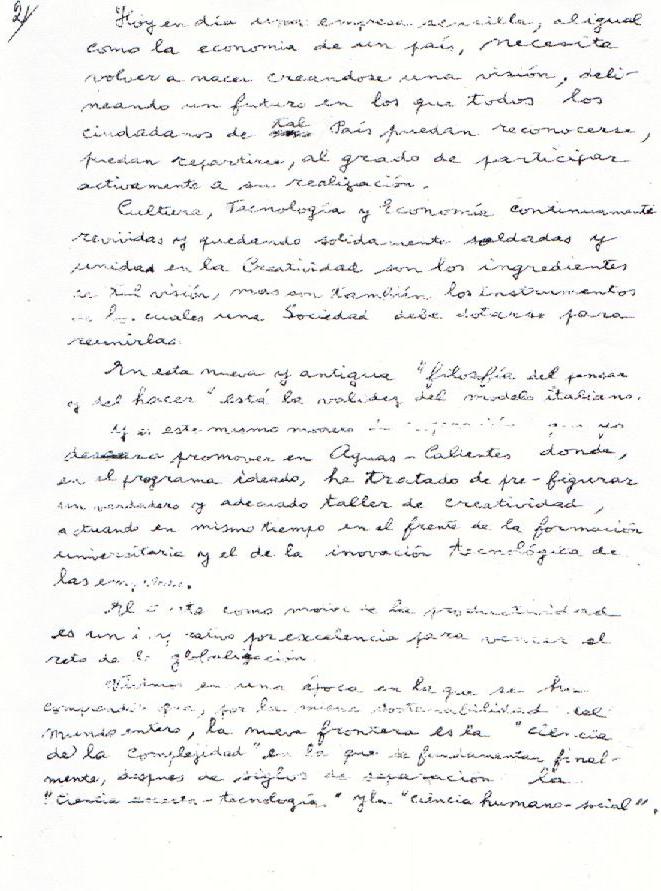 2/
Hoy en día una empresa sencilla, al igual
como la economia de un país, necesita
volver a nacer creandose una visión, deli-
neando un futuro en los que todos los
ciudadanos de tal País puedan reconocerse,
puedan repartirse, al grado de participar
activamente a su realización.
Cultura, Tecnología y Economía continuamente
revividas y quedando solidamente soldadas y
unidad en la Creatividad son los ingredientes
tal visión, mas son también los instrumentos
cuales una Sociedad debe dotarse para
reunirlas.
En esta nueva y antigua "filosofía del pensar
y del hacer" está la validez del modelo italiano.
este mismo que yo
promover en Aguas-Calientes donde,
en el programa ideado, he tratado de pre-figurar
un verdadero y adecuado taller de creatividad,
actuando en mismo tiempo en el frente de la formación
universitaria y el de la inovación tecnológica de
las
como de la productividad
es un por excelencia para vencer el
reto de la globalización.
Vivimos en una época en la que se ha
que, por la misma sostenabilidad del
mundo entero, la nueva frontera es la "ciencia
de la complejidad" en la que se fundamentan final-
mente, despues de siglos de separación la
"ciencia exacta-tecnología" y la "ciencia humano-social".